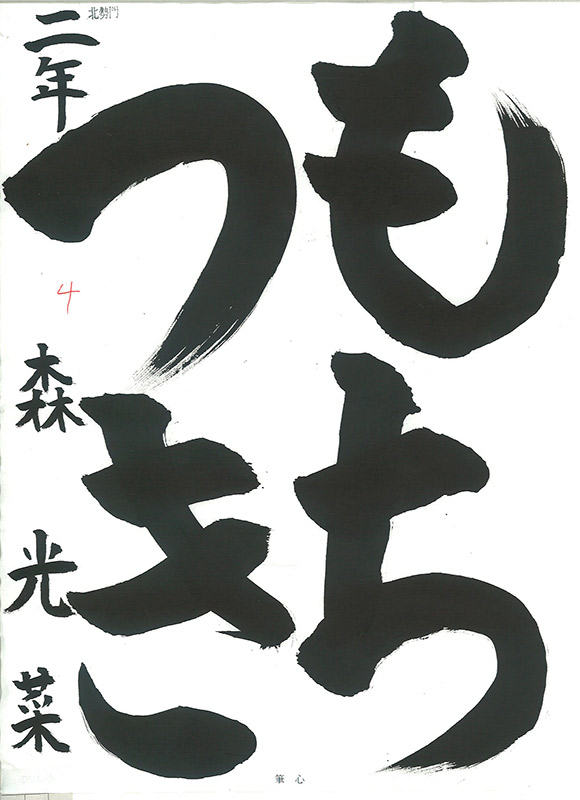 もち
つき
二年 森光菜
4
北勢門
筆心